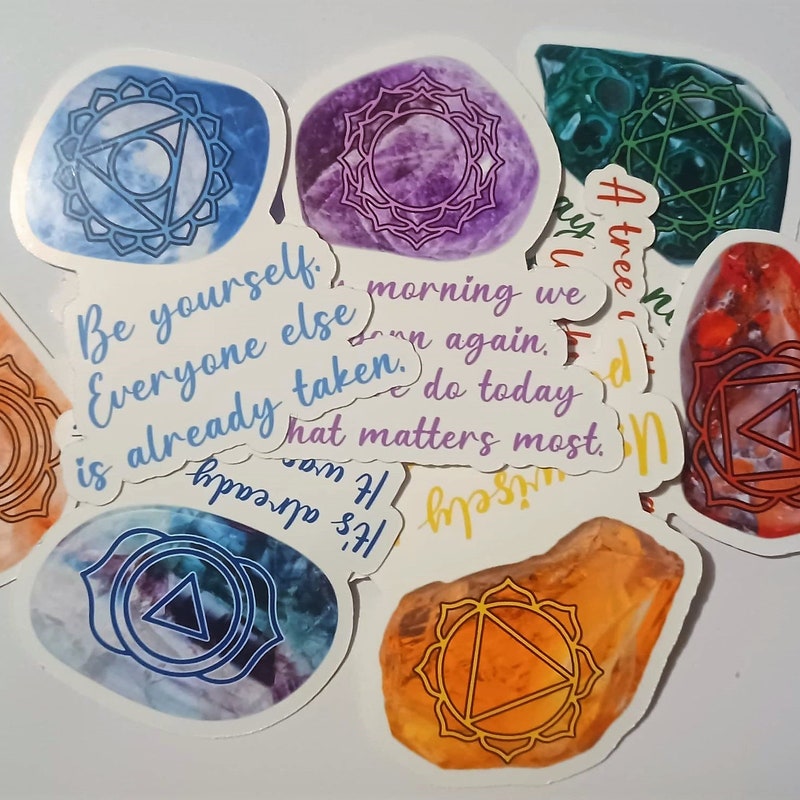 Be yourself.
Everyone else
is already taken.
morning we
again.
do today
matters most.
A tree
It's already
It was
wisely